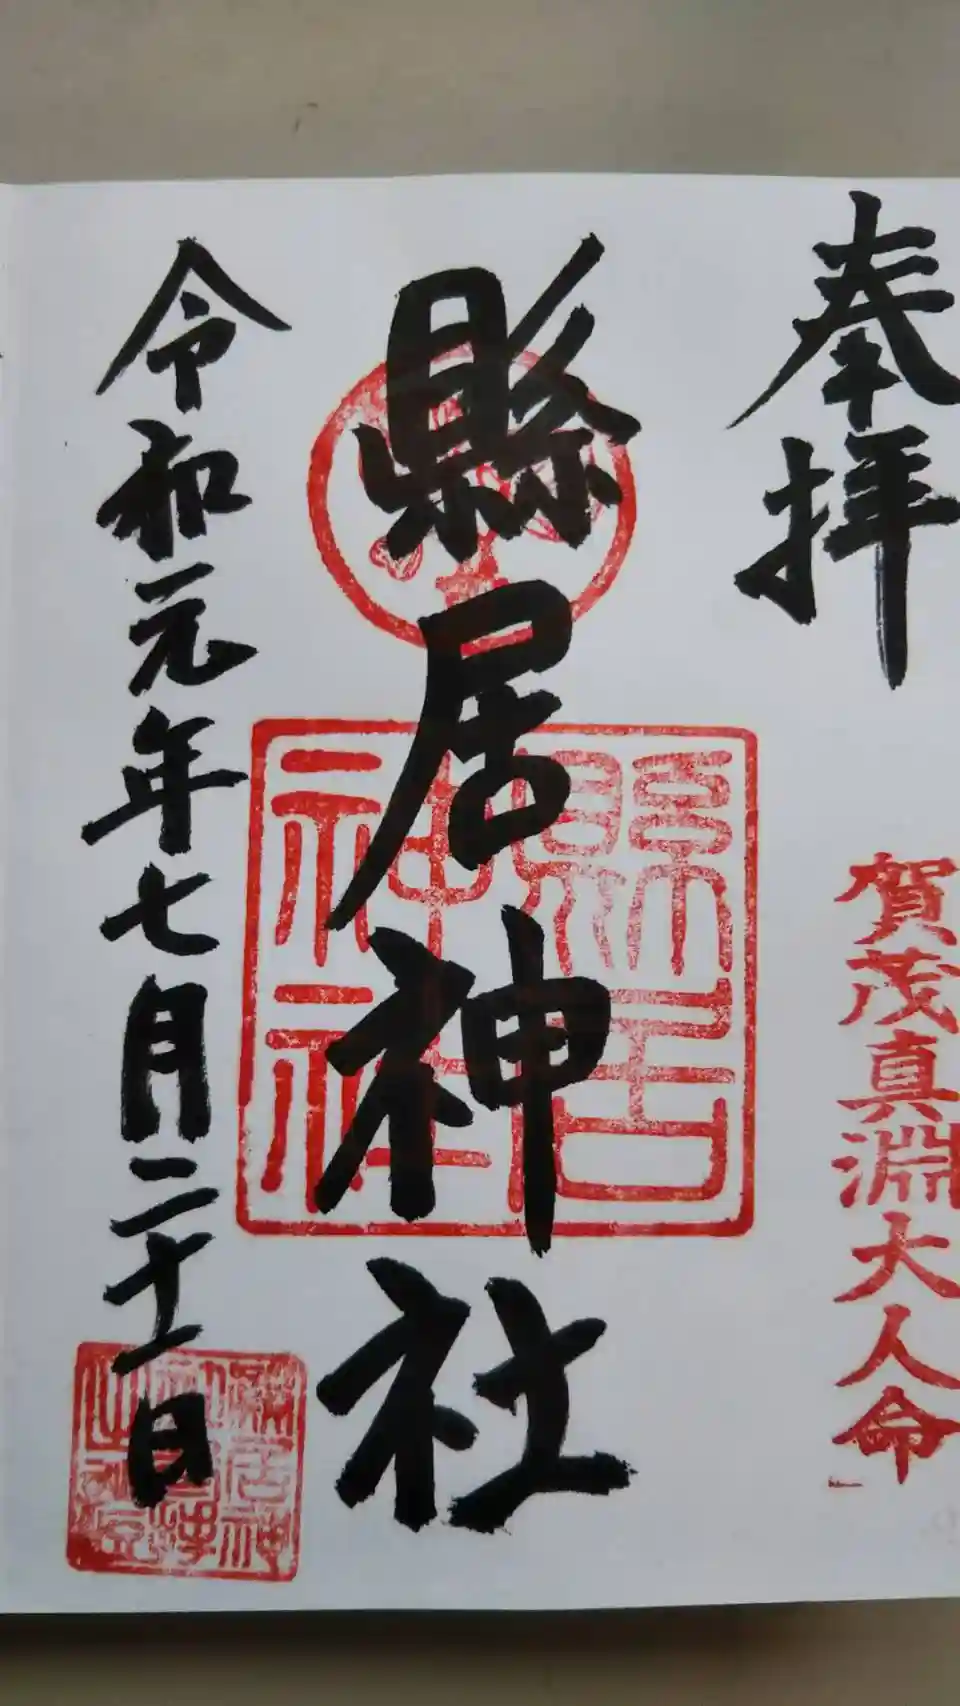 奉拝
賀茂真淵大人命
縣居神社
縣居神社
令和元年七月二十一日